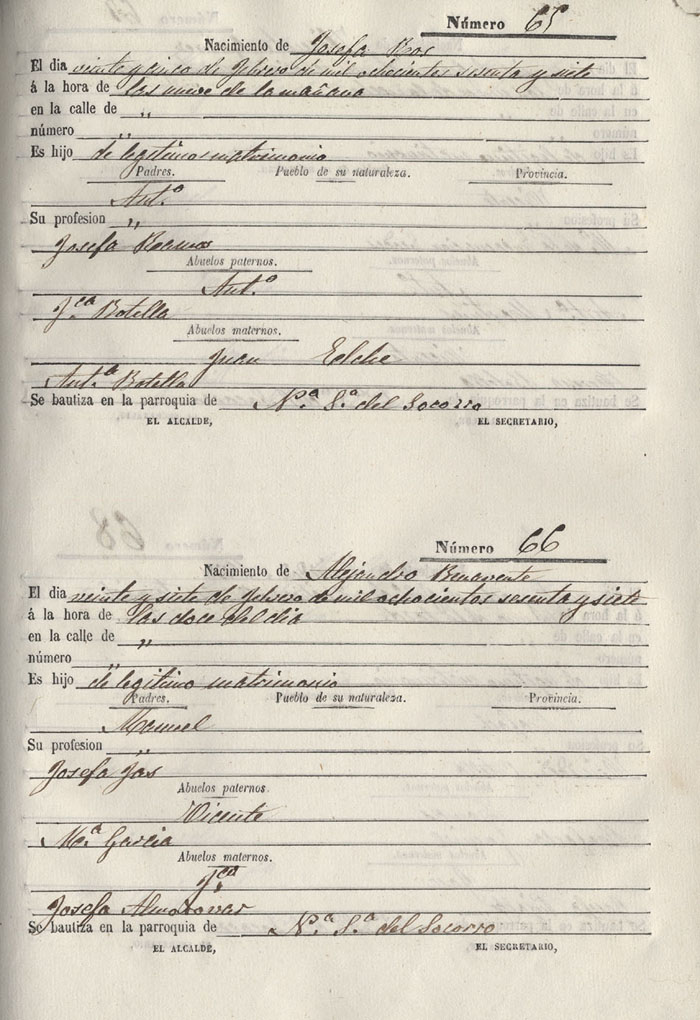 Número 65
Nacimiento de Josefa Bos
El dia veinte y cinco de febrero de mil ochocientos sesenta y siete
á la hora de las nueve de la mañana
en la calle de "
número "
Es hijo de legitimo matrimonio
Padres. Pueblo de su naturaleza. Provincia.
Antº
Su profesion "
Josefa Ramos
Abuelos paternos.
Antº
Jca Botella
Abuelos maternos.
Juan Elche
Antª Botella
Se bautiza en la parroquia de Nª Sª del Socorro
EL ALCALDE, EL SECRETARIO,
Número 66
Nacimiento de Alejandro Benavente
El dia veinte y siete de febrero de mil ochocientos sesenta y siete
á la hora de las doce del dia
en la calle de "
número "
Es hijo de legitimo matrimonio
Padres. Pueblo de su naturaleza. Provincia.
Manuel
Su profesion "
Josefa Jas
Abuelos paternos.
Vicente
Mª Garcia
Abuelos maternos.
Jca
Josefa Almodovar
Se bautiza en la parroquia de Nª Sª del Socorro
EL ALCALDE, EL SECRETARIO,